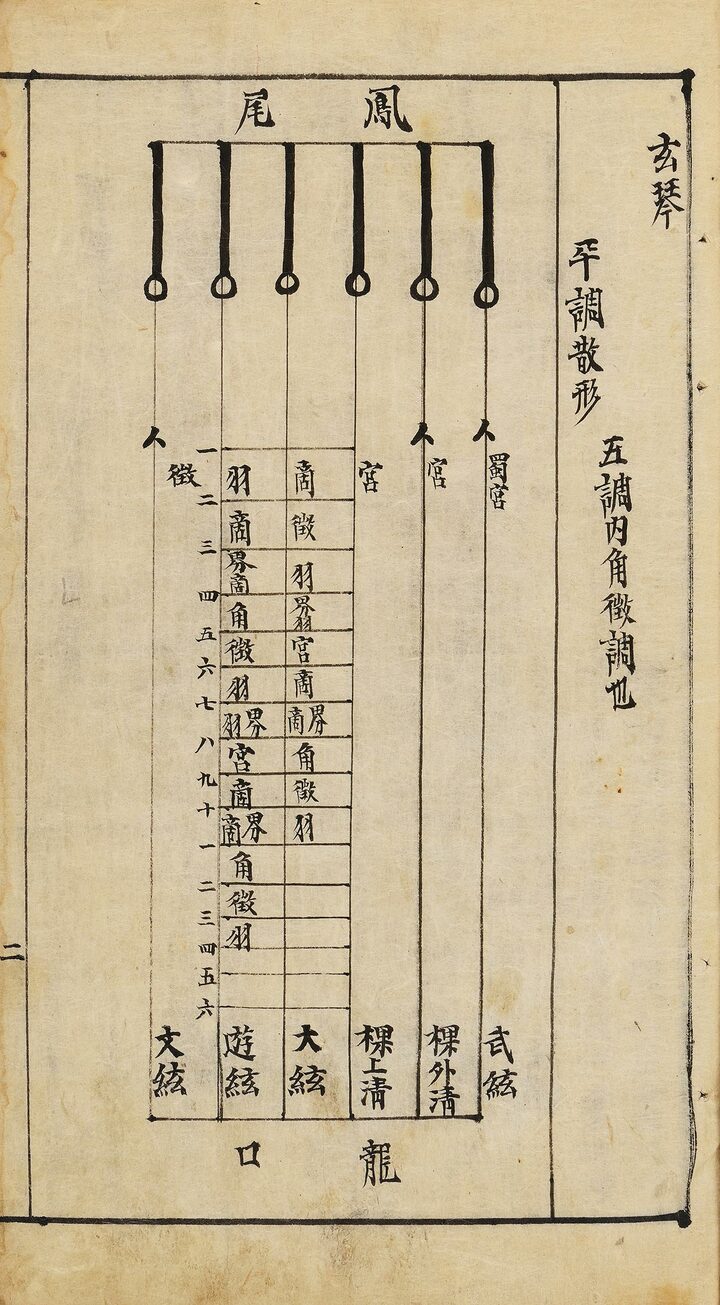 玄琴
平調散形
五調内角徵調也
鳳尾
人
蜀宮
武絃
人
宮
棵外清
宮
棵上清
商
徵
羽
界羽
宮
商
界商
角
徵
羽
大絃
羽
商
界商
角
徵
羽
界羽
宮
商
界商
角
徵
羽
遊絃
一
二
三
四
五
六
七
八
九
十
一
二
三
四
五
六
人
徵
文絃
龍口
二